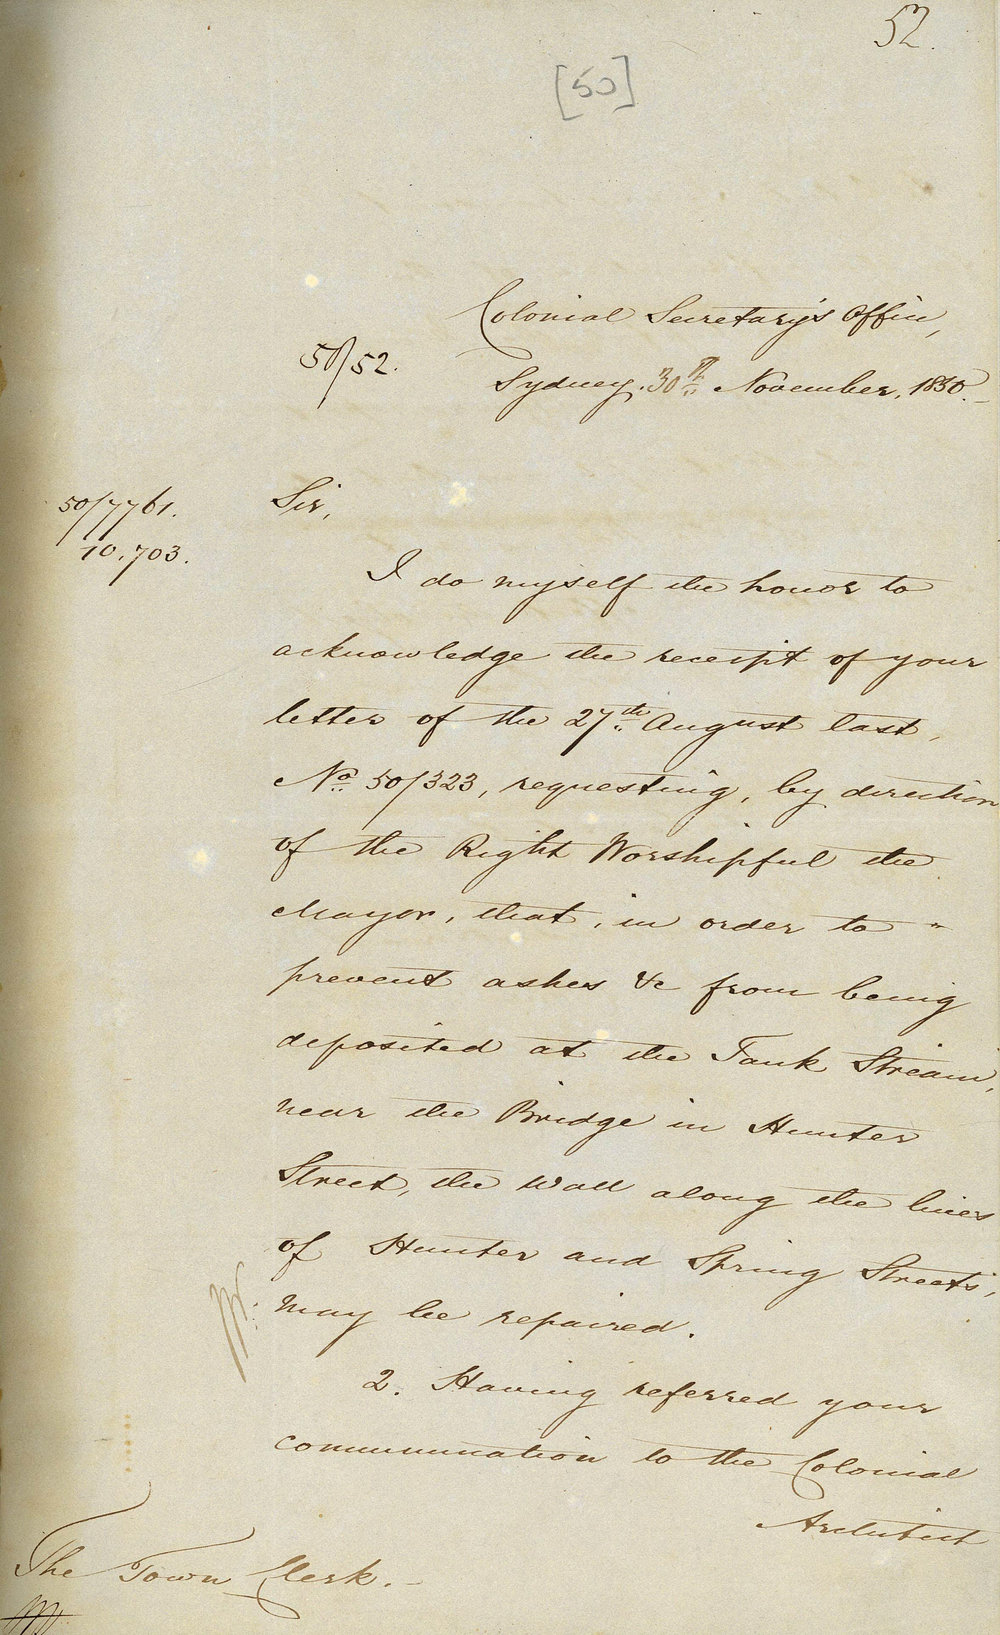 52.
[50]
Colonial Secretary's Office,
50/52.
Sydney. 30th November, 1850.
50/7761.
10.703.
Sir,
I do myself the honor to
acknowledge the receipt of your
letter of the 27th August last,
No. 50/323, requesting, by direction
of the Right Worshipful the
Mayor, that, in order to
prevent ashes &c from being
deposited at the Tank Stream,
near the Bridge in Hunter
Street, the Wall along the lines
of Hunter and Spring Streets,
may be repaired.
2. Having referred your
communication to the Colonial
Architect
The Town Clerk.